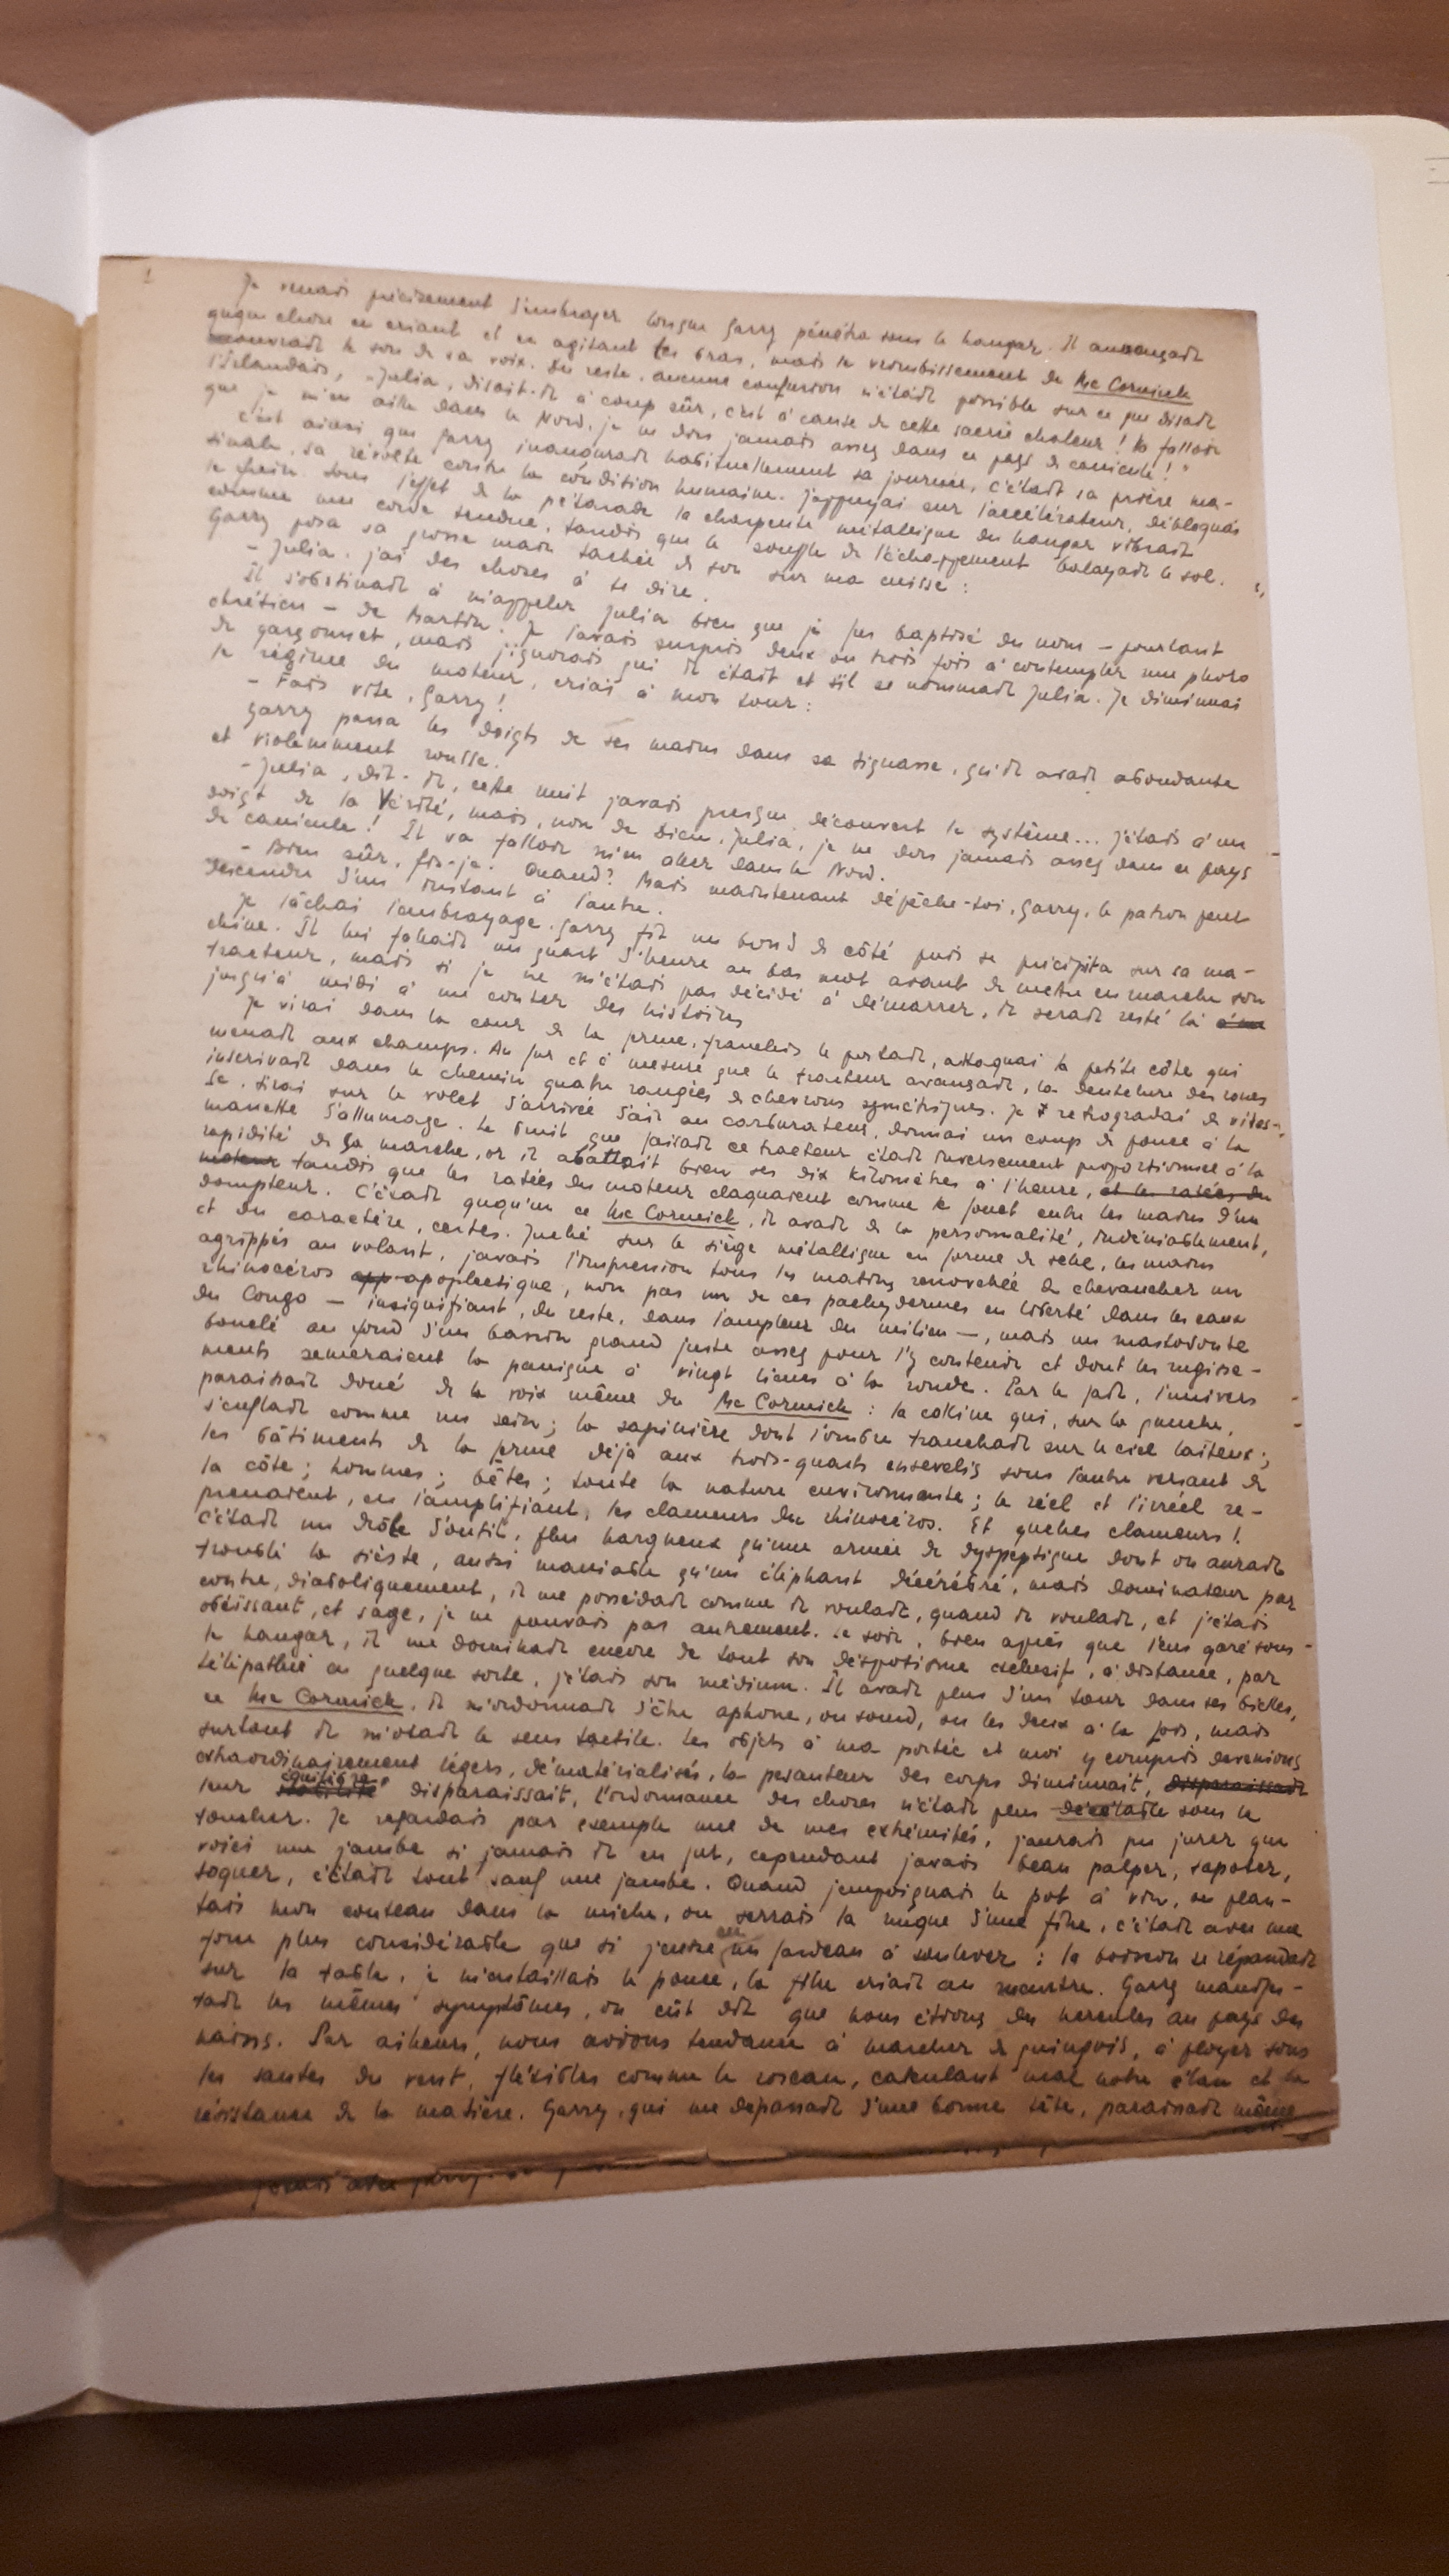 1
Je venais précisément d'embrayer lorsque Garry pénétra sous le hangar. Il annonçait
quque chose en criant et en agitant les bras, mais le vrombissement du Mc Cormick
couvrait le son de sa voix. Du reste, aucune confusion n'était possible sur ce que disait
l'Irlandais, "Julia, disait-il à coup sûr, c'est à cause de cette sacrée chaleur ! Va falloir
que je m'en aille dans le Nord, je ne dors jamais assez dans ce pays de canicule !"
C'est ainsi que Garry inaugurait habituellement sa journée, c'était sa prière ma-
tinale, sa révolte contre la condition humaine. J'appuyai sur l'accélérateur, débloquai
le frein. Sous l'effet de la pétarade la charpente métallique du hangar vibrait
comme une corde tendue, tandis que le souffle de l'échappement balayait le sol.
Garry posa sa grosse main tachée de son sur ma cuisse :
- Julia, j'ai des choses à te dire.
Il s'obstinait à m'appeler Julia bien que je fus baptisé du nom - pourtant
chrétien - de Martin. Je l'avais surpris deux ou trois fois à contempler une photo
de garçonnet, mais j'ignorais qui il était et s'il se nommait Julia. Je diminuai
le régime du moteur, criai à mon tour :
- Fais vite, Garry !
Garry passa les doigts de ses mains dans sa tignasse, qu'il avait abondante
et violemment rousse.
- Julia, dit-il, cette nuit j'avais presque découvert le système... J'étais à un
doigt de la Vérité, mais, nom de Dieu, Julia, je ne dors jamais assez dans ce pays
de canicule ! Il va falloir m'en aller dans le Nord.
- Bien sûr, fis-je. Quand ? Mais maintenant dépêche-toi, Garry, le patron peut
descendre d'un instant à l'autre.
Je lâchai l'embrayage. Garry fit un bond de côté puis se précipita sur sa ma-
chine. Il lui fallait un quart d'heure au bas mot avant de mettre en marche son
tracteur, mais si je ne m'étais pas décidé à démarrer, il serait resté là
jusqu'à midi à me conter des histoires
Je virai dans la cour de la ferme, franchis le portail, attaquai la petite côte qui
menait aux champs. Au fur et à mesure que le tracteur avançait, la dentelure des roues
inscrivait dans le chemin quatre rangées de chevrons symétriques. Je retrogradai de vites-
se, tirai sur le volet d'arrivée d'air au carburateur, donnai un coup de pouce à la
manette d'allumage. Le bruit que faisait ce tracteur était inversement proportionnel à la
rapidité de sa marche, or il abattait bien ses dix kilomètres à l'heure, et les ratées du
moteur tandis que les ratées du moteur claquaient comme le fouet entre les mains d'un
dompteur. C'était ququ'un ce Mc Cormick, il avait de la personnalité, indéniablement,
et du caractère, certes. Juché sur le siège métallique en forme de selle, les mains
agrippés au volant, j'avais l'impression tous les matins renouvelée de chevaucher un
rhinocéros app apoplectique, non pas un de ces pachydermes en liberté dans les eaux
du Congo - insignifiant, du reste, dans l'ampleur du milieu -, mais un mastodonte
bouclé au fond d'un bassin grand juste assez pour l'y contenir et dont les rugisse-
ments sèmeraient la panique à vingt lieues à la ronde. Par le fait, l'univers
paraissait doué de la voix même du Mc Cormick : la colline qui, sur la gauche,
s'enflait comme un sein; la sapinière dont l'ombre tranchait sur le ciel laiteux;
les bâtiments de la ferme déjà aux trois-quarts ensevelis sous l'autre versant de
la côte; hommes; bêtes; toute la nature environnante; le réel et l'irréel re-
prenaient, en l'amplifiant, les clameurs du rhinocéros. Et quelles clameurs !
C'était un drôle d'outil, plus hargneux qu'une armée de dyspeptique dont on aurait
troublé la sieste, aussi maniable qu'un éléphant décérébré, mais dominateur par
contre, diaboliquement, il me possédait comme il voulait, quand il voulait, et j'étais
obéissant, et sage, je ne pouvais pas autrement. Le soir, bien après que l'eus garé sous
le hangar, il me dominait encore de tout son despotisme, à distance, par
télépathie en quelque sorte, j'étais son médium. Il avait plus d'un tour dans ses bielles,
ce Mc Cormick, il m'ordonnait d'être aphone, ou sourd, ou les deux à la fois, mais
surtout il m'ôtait le sens tactile. Les objets à ma portée et moi y compris devenions
extraordinairement légers, dématérialisés, la pesanteur des corps diminuait, disparaissait
leur stabilité équilibre disparaissait, l'ordonnance des choses n'était plus décelable sous le
toucher. Je regardais par exemple une de mes extrémités, j'aurais pu jurer que
voici une jambe si jamais il en fut, cependant j'avais beau palper, tapoter,
toquer, c'était tout sauf une jambe. Quand j'empoignais le pot à vin, ou plan-
tais mon couteau dans la miche, ou serrais la nuque d'une fille, c'était avec une
force plus considérable que si j'eusse eu un fardeau à soulever : la boisson se répandait
sur la table, je m'entaillais le pouce, la fille criait au meurtre. Garry manifes-
tait les mêmes symptômes, on eût dit que nous étions des hercules au pays des
nains. Par ailleurs, nous avions tendance à marcher de guingois, à ployer sous
les sautes du vent, fléxibles comme le roseau, calculant mal notre élan et la
résistance de la matière. Garry, qui me dépassait d'une bonne tête, paraissait même